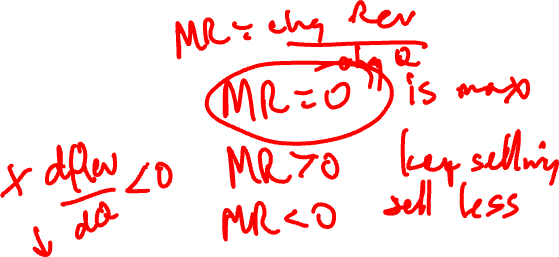 MR = chg Rev
chg Q
MR = 0 is max
MR > 0 keep selling
MR < 0 sell less
dRev < 0
dQ